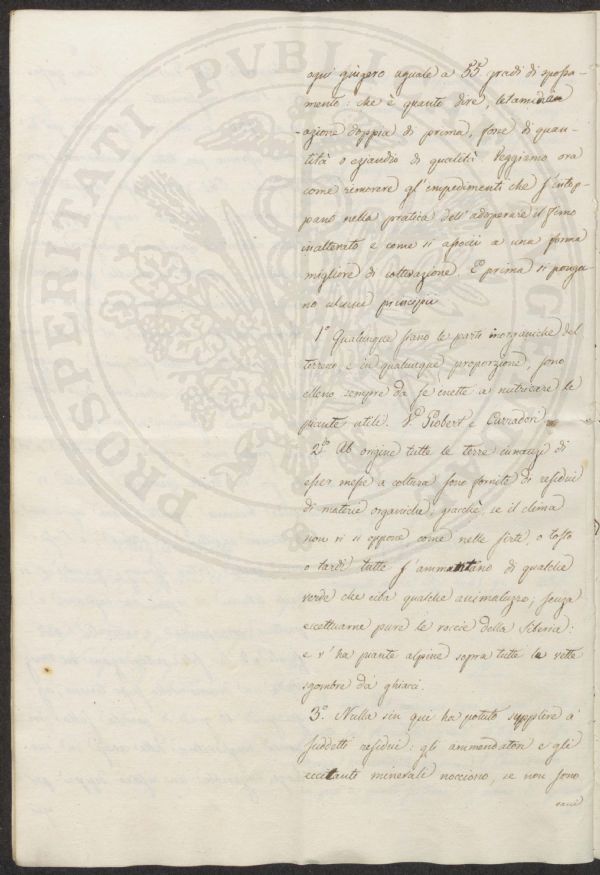 ogni giugero uguale a 55 gradi di spossa-
mento: che è quanto dire, letamin
azione doppia di prima, forse di quan-
tità o eziandio di qualità. Veggiamo ora
come rimovere gl'impedimenti che s'intop-
pano nella pratica dell'adoperare il fimo
inalterato e come si associi a una forma
migliore di coltivazione. E prima si ponga-
no alcuni principii
1.º Qualunque siano le parti inorganiche del
terreno e in qualunque proporzione, sono
elleno sempre da sè inette a nutricare le
piante utili. V.º Piobert e Curradori.
2.º Ab origine tutte le terre innanzi di
esser messe a coltura sono fornite di residui
di materie organiche; giacchè, se il clima
non vi si oppone come nelle sirti, o tosto
o tardi tutte s'ammantano di qualche
verde che ciba qualche animaluzzo; senza
eccettuarne pure le roccie della Siberia:
e v'ha piante alpine sopra tutte le vette
sgombre da' ghiacci.
3.º Nulla sin qui ha potuto supplire a'
suddetti residui: gli ammendatori e gli
eccitanti minerali nocciono, se non sono
PROSPERITATI PVBLICAE